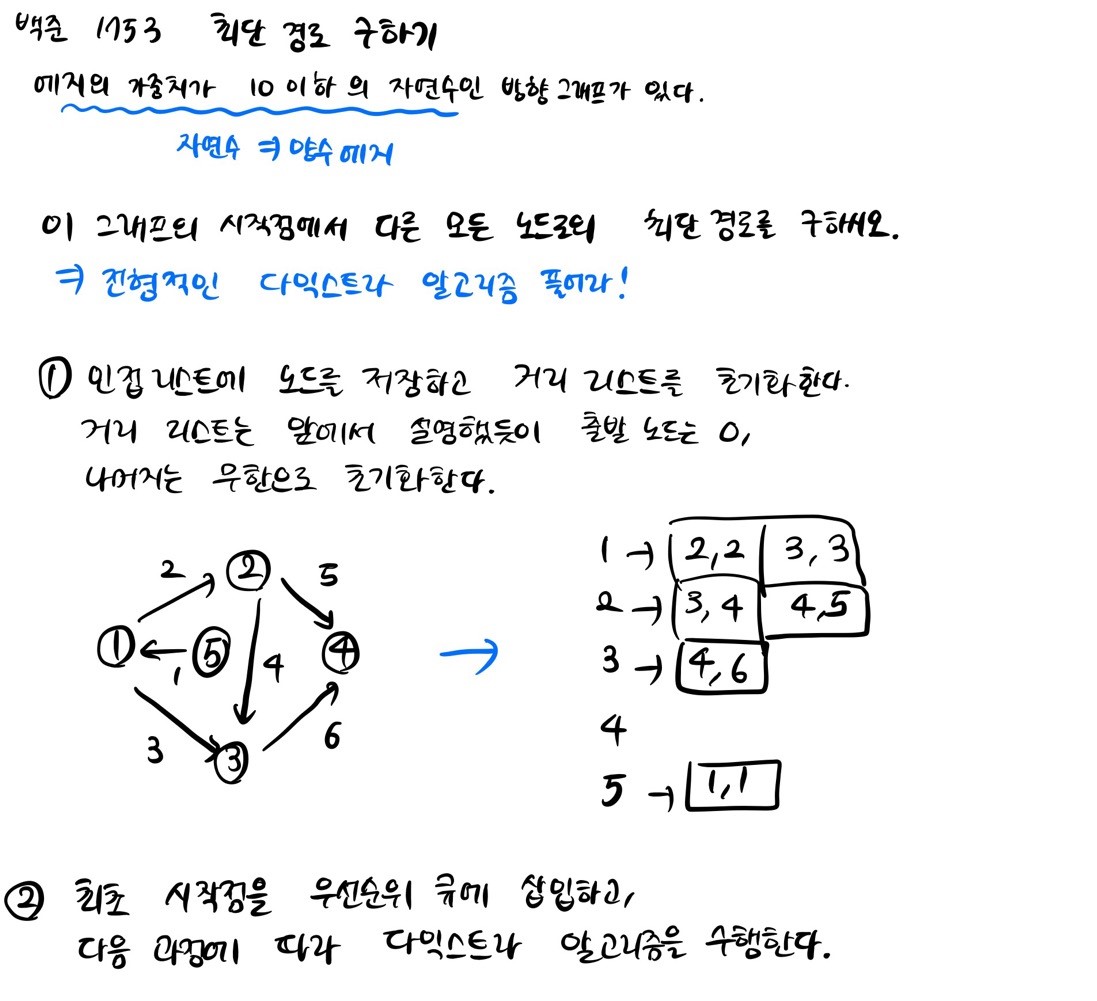 백준 1753 최단 경로 구하기
에지의 가중치가 10 이하의 자연수인 방향 그래프가 있다.
자연수 ⇒ 양수 에지
이 그래프의 시작점에서 다른 모든 노드로의 최단 경로를 구하시오.
⇒ 전형적인 다익스트라 알고리즘 풀어라!
① 인접 리스트에 노드를 저장하고 거리 리스트를 초기화한다.
거리 리스트는 앞에서 설명했듯이 출발 노드는 0,
나머지는 무한으로 초기화한다.
2 ② 5
① ← ⑤ 4 ④
1
3 ③ 6
→
1 → 2,2 3,3
2 → 3,4 4,5
3 → 4,6
4
5 → 1,1
② 최초 시작점을 우선순위 큐에 삽입하고,
다음 과정에 따라 다익스트라 알고리즘을 수행한다.